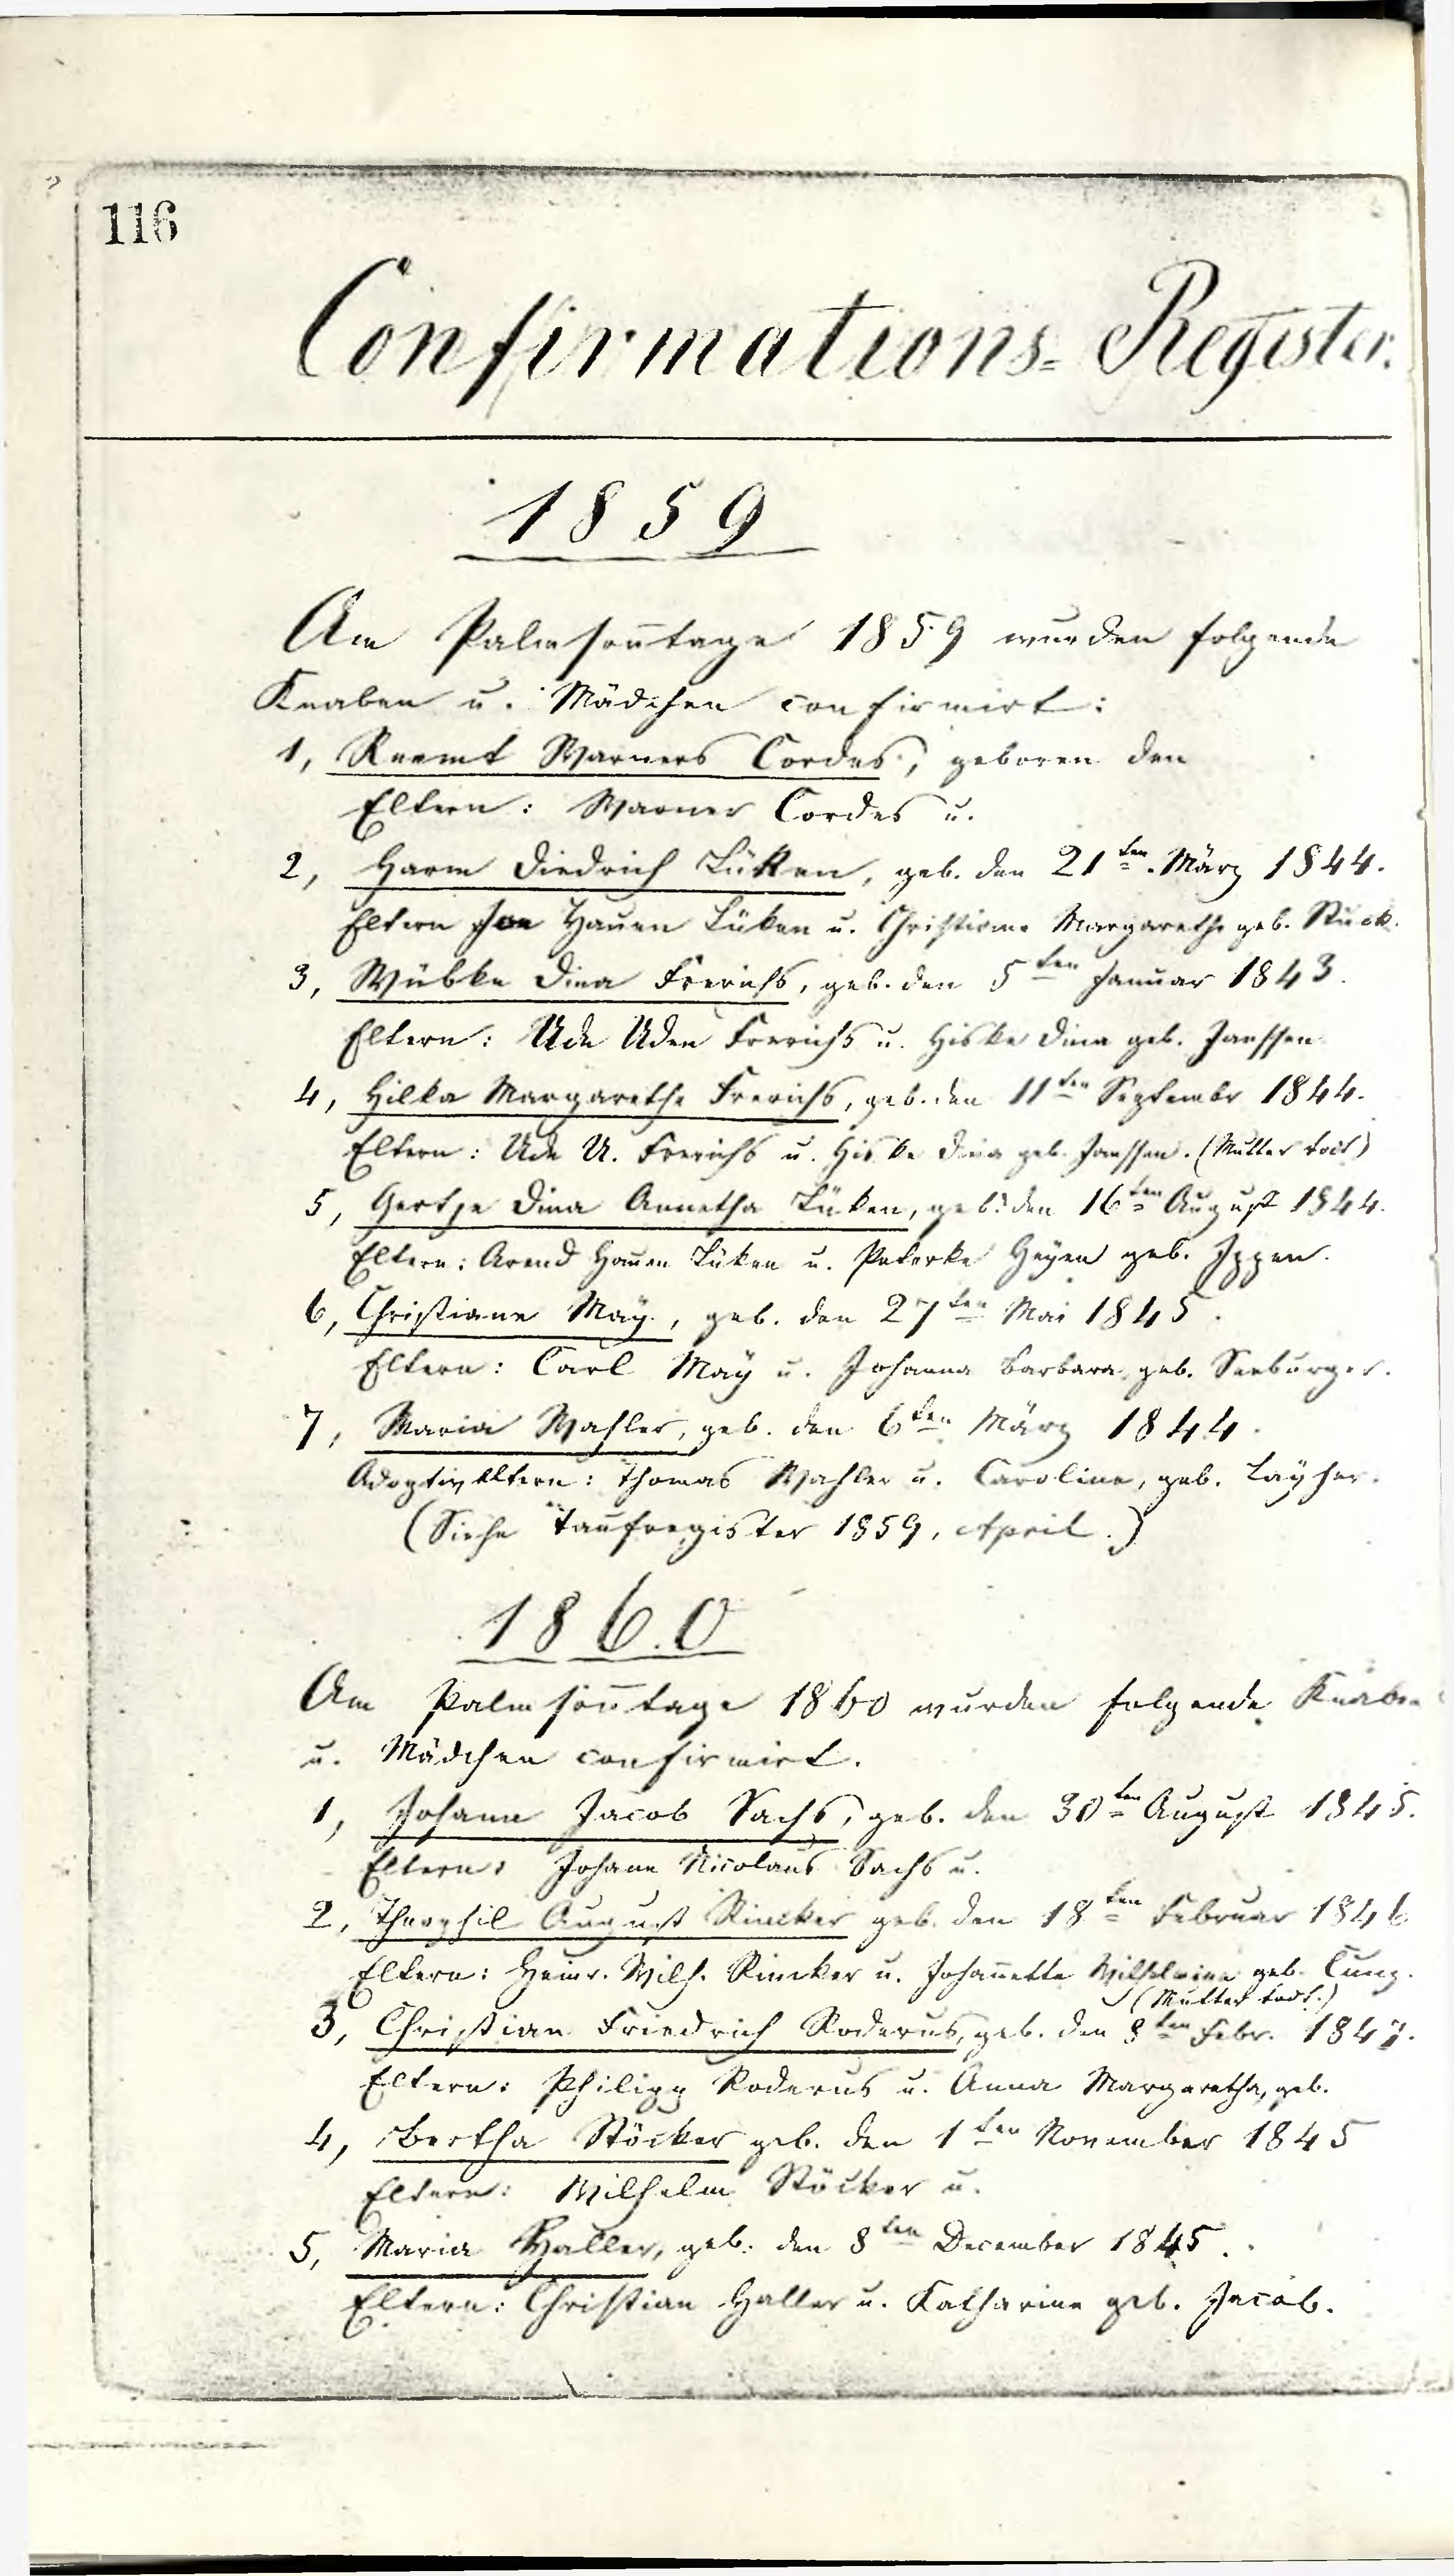 116
Confirmations-Register.
1859
Am Palmsoñtage 1859 wurden folgende
Knaben u. Mädchen confirmirt:
1, Reemt Warners Cordes, geboren den
Eltern: Warner Cordes u.
2, Harm Diedrich Lüken, geb. den 21ten März 1844.
Eltern Hauen Lüken u. Christiane Margarethe geb. Stuck.
3, Wübke Dina Frerichs, geb. den 5ten Januar 1843.
Eltern: Ude Uden Frerichs u. Hiske Dina geb. Janssen
4, Hilka Margarethe Frerichs, geb. den 11ten Septembr 1844.
Eltern: Ude U. Frerichs u. Hiske Dina geb. Janssen. (Mutter todt)
5, Gertje Dina Annetha Lüken, geb. den 16ten August 1844.
Eltern: Arend Hauen Lüken u. Peterke Heyen geb. Ippen.
6, Christiane Maÿ, geb. den 27ten Mai 1845.
Eltern: Carl Maÿ u. Johanna Barbara, geb. Seeburger.
7, Maria Wahler, geb. den 6ten März 1844.
Adoptiveltern: Thomas Wahler u. Caroline, geb. Laÿher.
(Siehe Taufregister 1859, April.)
1860
Am Palmsoñtage 1860 wurden folgende Knaben
u. Mädchen confirmirt.
1, Johann Jacob Sachs, geb. den 30ten August 1845.
Eltern: Johann Nicolaus Sachs u.
2, Theophil August Rincker geb. den 18ten Februar 1846
Eltern: Heinr. Wilh. Rincker u. Johañette Wilhelmine geb.
(Mutter todt.)
3, Christian Friedrich Roderus, geb. den 8ten Febr.
Eltern: Philipp Roderus u. Anna Margaretha, geb.
4, Bertha Stöcker geb. den 1ten November 1845
Eltern: Wilhelm Stöcker u.
5, Maria Haller, geb. den 8ten December 1845.
Eltern: Christian Haller u. Katharine geb. Jacob.